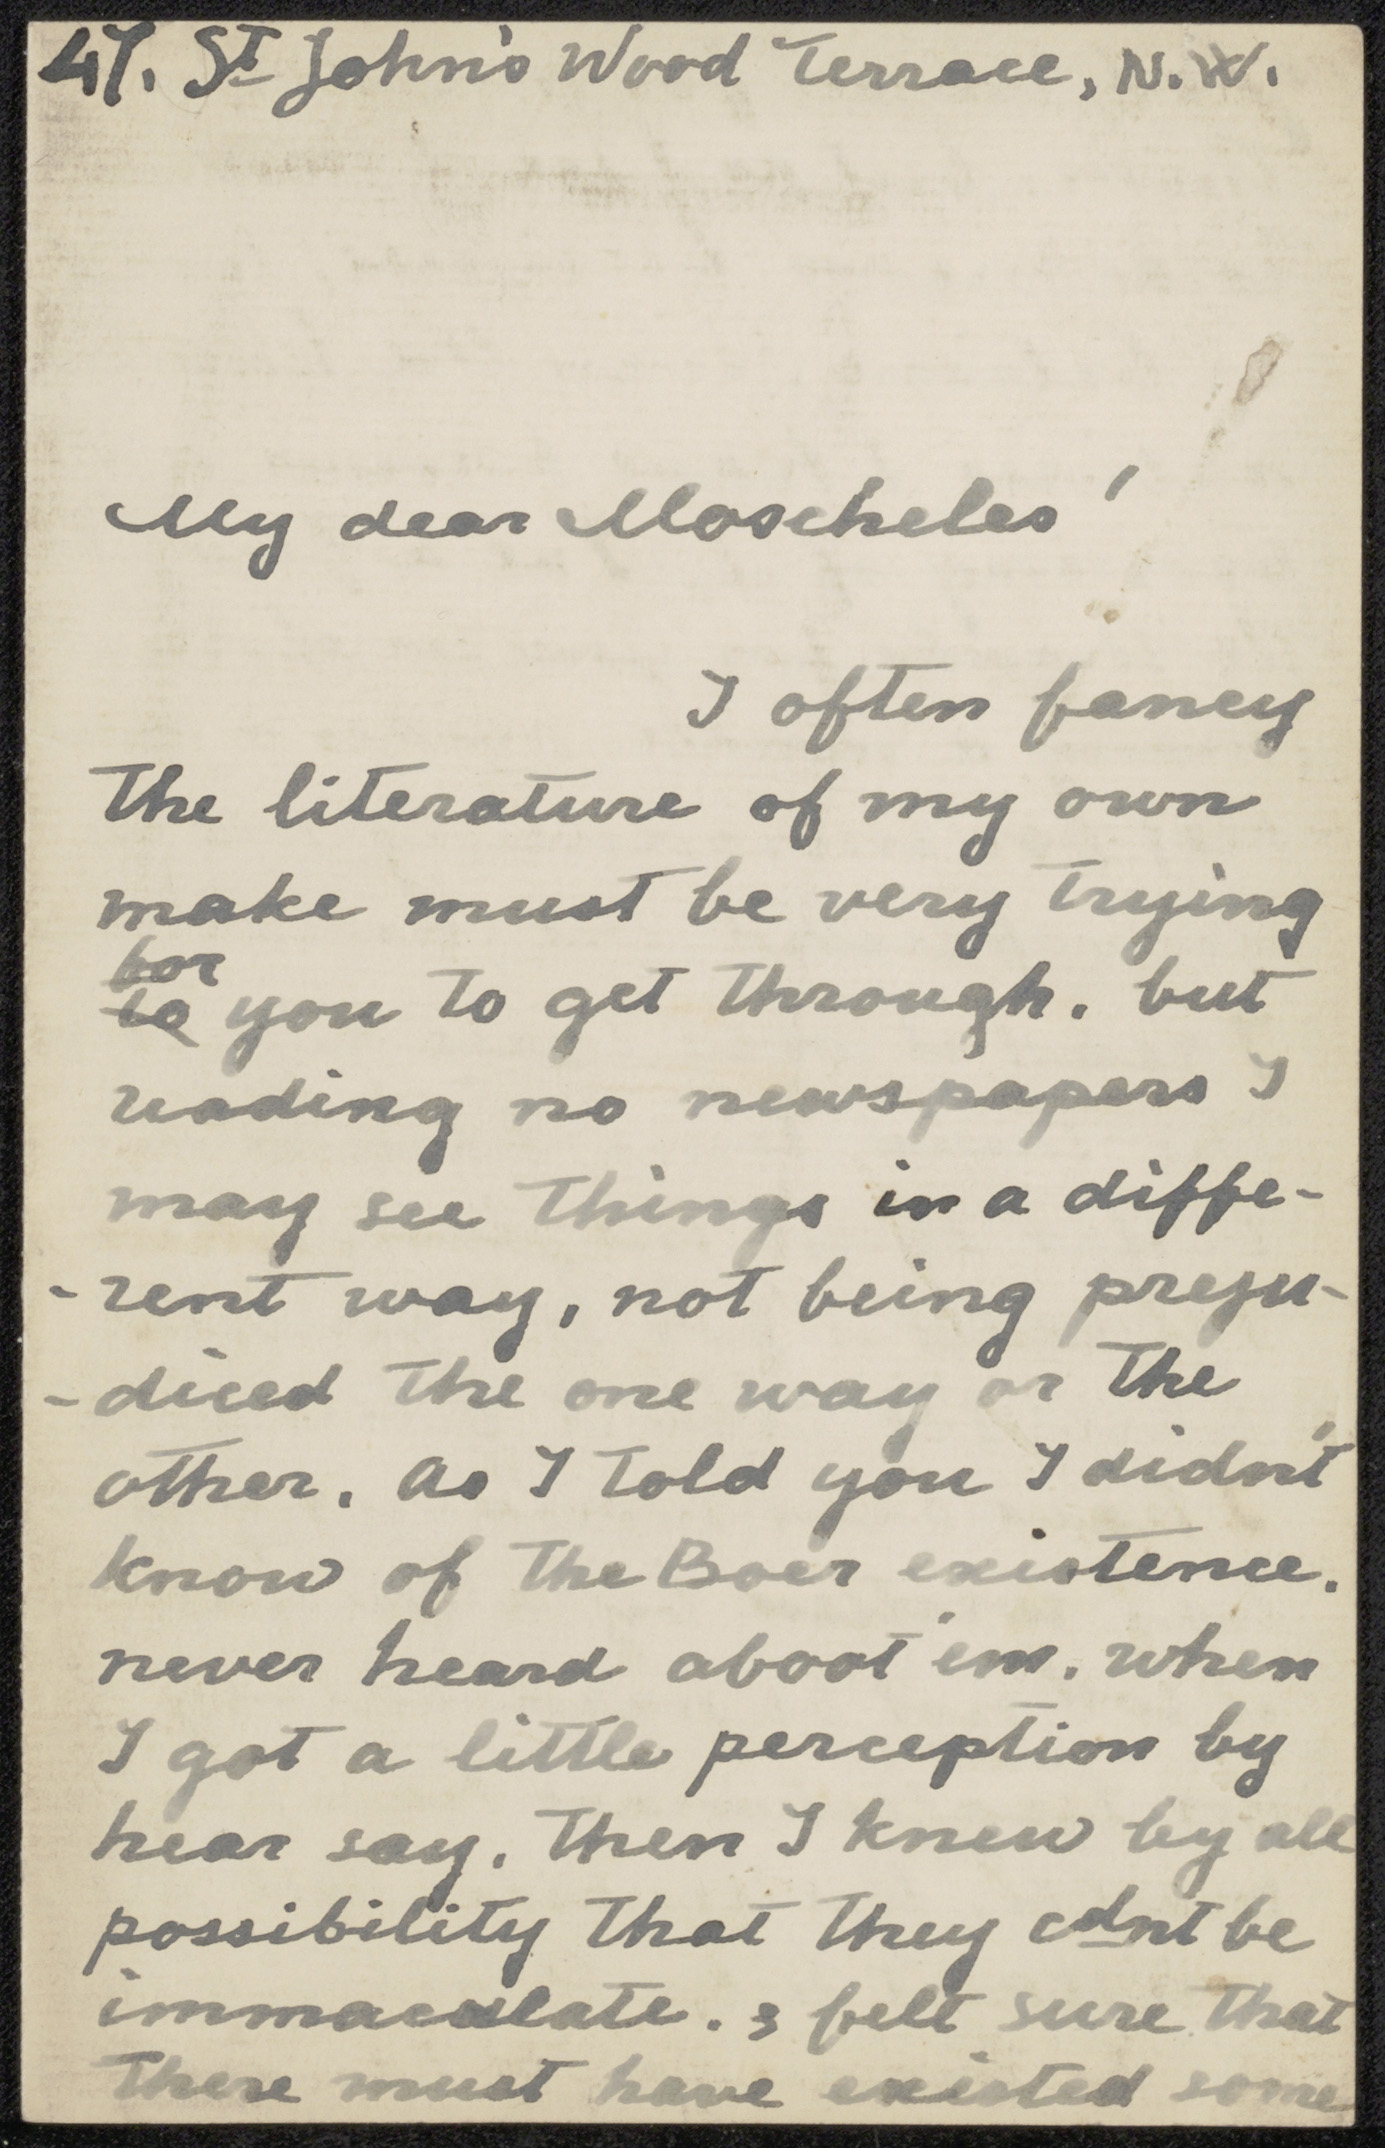 47. St John's Wood Terrace, N.W.
My dear Moscheles!
I often fancy
the literature of my own
make must be very trying
for
to you to get through. but
reading no newspapers I
may see things in a diffe-
-rent way, not being preju-
-diced the one way or the
other. as I told you I didn't
know of the Boer existence.
never heard aboot 'em. when
I got a little perception by
hear say. then I knew by all
possibility that they cdnt be
immaculate. & felt sure that
there must have existed some